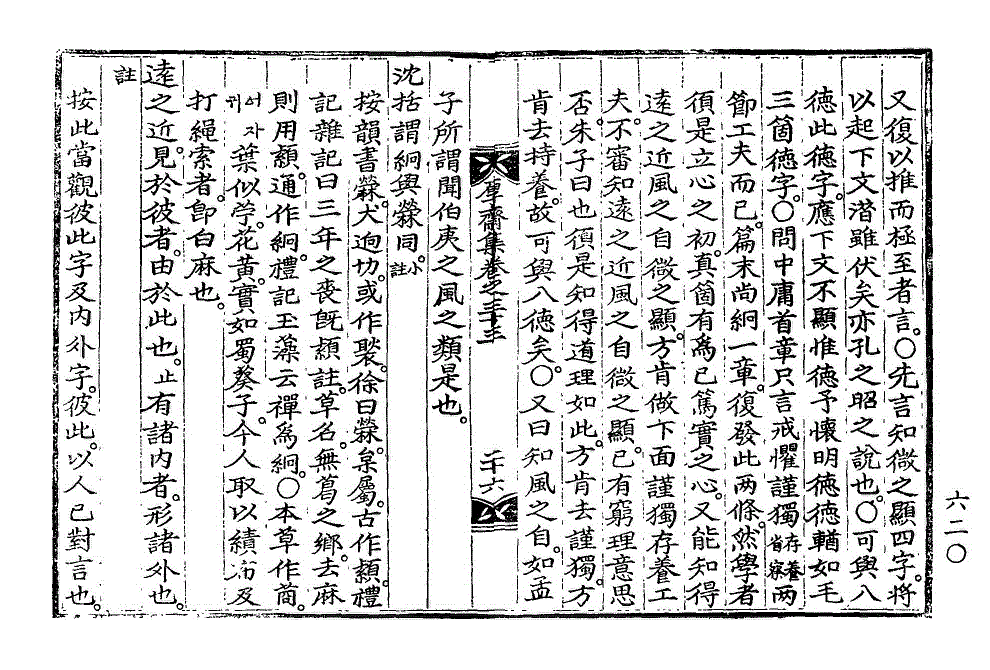 又復以推而極至者言○先言知微之顯四字將
以起下文潛雖伏矣亦孔之昭之說也○可與八
德此德字應下文不顯惟德予懷明德德輶如毛
三箇德字○問中庸首章只言戒懼謹獨存養省察兩
節工夫而已篇末尚絅一章復發此两條然學者
須是立心之初真箇有爲己篤實之心又能知得
遠之近風之自微之顯方肯做下面謹獨存養工
夫不審知遠之近風之自微之顯已有窮理意思
否朱子曰也須是知得道理如此方肯去謹獨方
肯去持養故可與八德矣○又曰知風之自如孟
厚齋集卷之三十三
二十六
子所謂聞伯夷之風之類是也
沈括謂絅與褧同小註
按韻書褧犬迥切或作䌹徐曰褧枲屬古作顈禮
記雜記曰三年之喪旣顈註草名無葛之鄕去麻
則用顈通作絅禮記玉藻云襌爲絅○本草作䔛
귀어자葉似苧花黃實如蜀葵子今人取以績布及
打繩索者卽白麻也
遠之近見於彼者由於此也止有諸內者形諸外也
註
按此當觀彼此字及內外字彼此以人己對言也
六二○